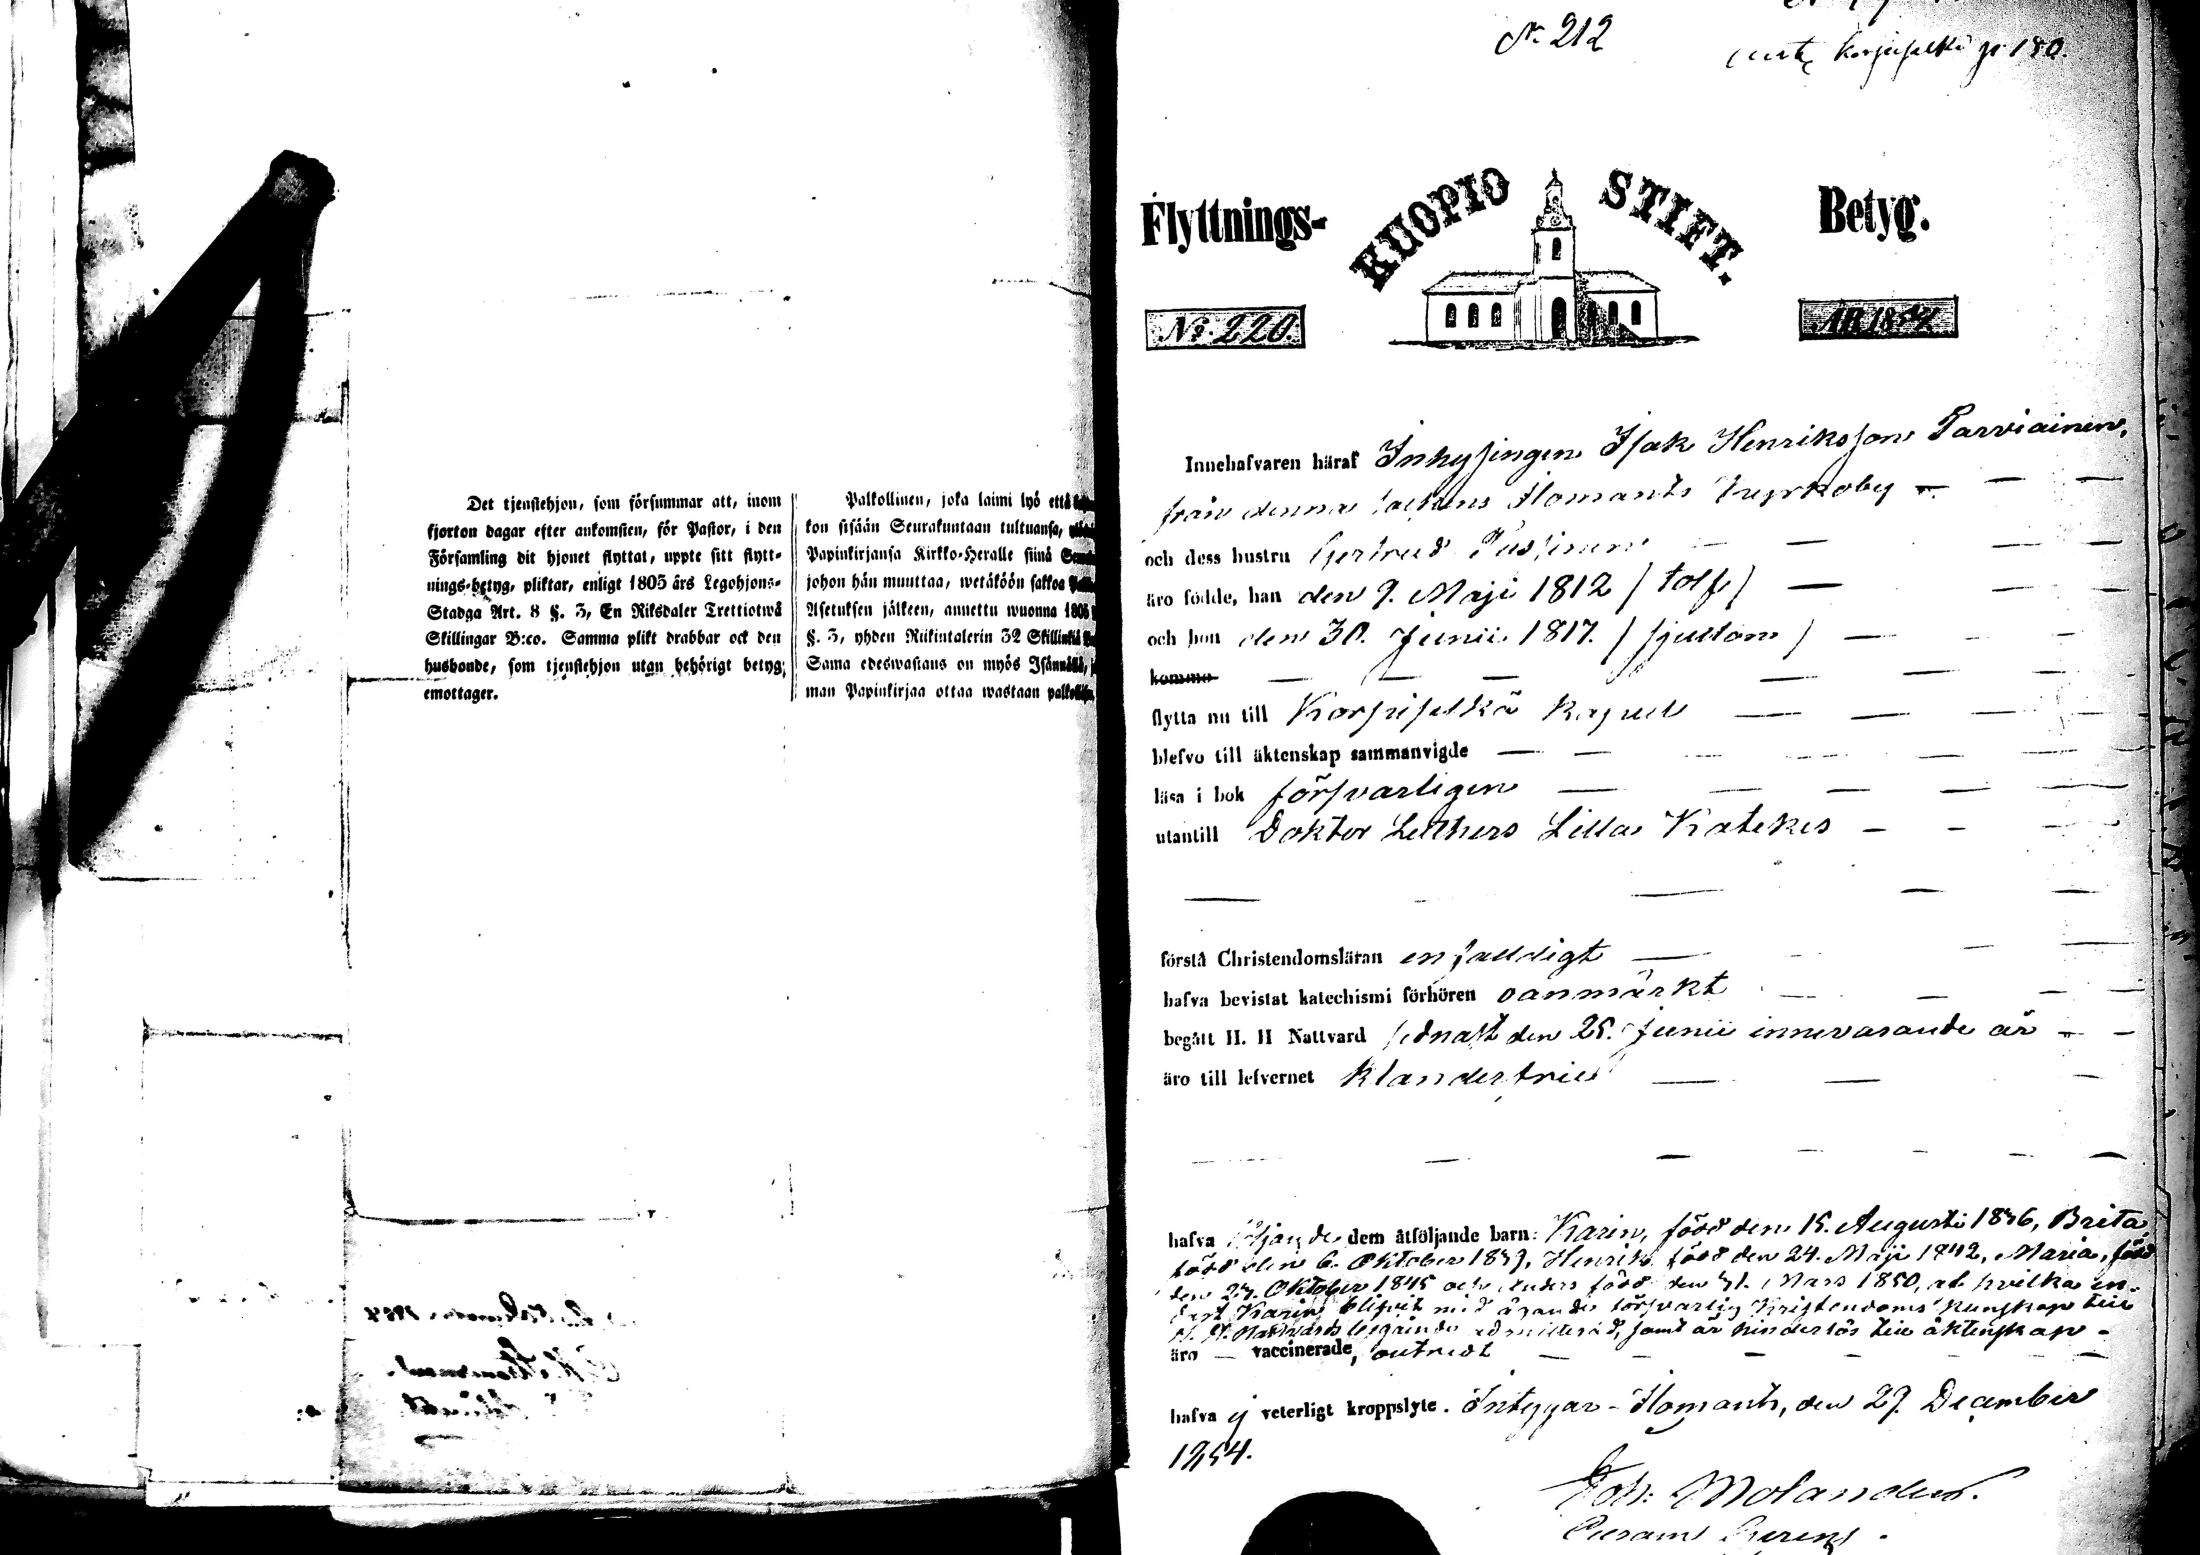 Det tjenstehjon, som försummar att, inom
fjorton dagar efter ankomsten, för Pastor, i den
Församling dit hjonet flyttat, uppte sitt flytt-
nings-betyg, pliktar, enligt 1805 års Legohjons-
Stadga Art. 8 §. 3, En Riksdaler Trettiotwå
Skillingar B:co. Samma plikt drabbar ock den
husbonde, som tjenstehjon utan behörigt betyg
emottager.
Palkollinen, joka laimi lyö että
kon sisään Seurakuntaan tultuansa,
Papinkirjansa Kirkko-Heralle siinä
johon hän muuttaa, wetäköön sakkoa
Asetuksen jälkeen, annettu wuonna 1805
§. 3, yhden Riikintalerin 32 Skillinkiä
Sama edeswastaus on myös Isännällä,
man Papinkirjaa ottaa wastaan
N. 212
Korpiselkä p. 180.
Flyttnings- KUOPIO STIFT. Betyg.
No. 220. ÅR 1854
Innehafvaren häraf Inhysingen Isak Henriksson Parviainen,
från denna Ilomants kyrkoby
och dess hustru Gertrud
äro födde, han den 9. Maji 1812 / tolf /
och hon den 30. Junii 1817. / sjutton /
komma
flytta nu till Korpiselkä kapell
blefvo till äktenskap sammanvigde
läsa i bok försvarligen
utantill Doktor Luthers Lilla Katekes
förstå Christendomsläran enfaldigt
hafva bevistat katechismi förhören oanmärkt
begått H. H Nattvard sednast den 25. Junii innevarande år
äro till lefvernet klanderfrie
hafva följande dem åtföljande barn: Karin, född den 15. Augusti 1836, Brita
född den 6. Oktober 1839, Henrik född den 24. Maji 1842, Maria, född
den 27. Oktober 1845 och Anders född den 31. Mars 1850, af hvilka en-
dast Karin blifvit med ägande försvarlig Kristendoms kunskap till
H. H. Nattvards begående admitterad, samt är hinderlös till äktenskap -
äro vaccinerade,
hafva ej veterligt kroppslyte. Intygar Ilomants, den 29. December
1854.
Joh: Molander.